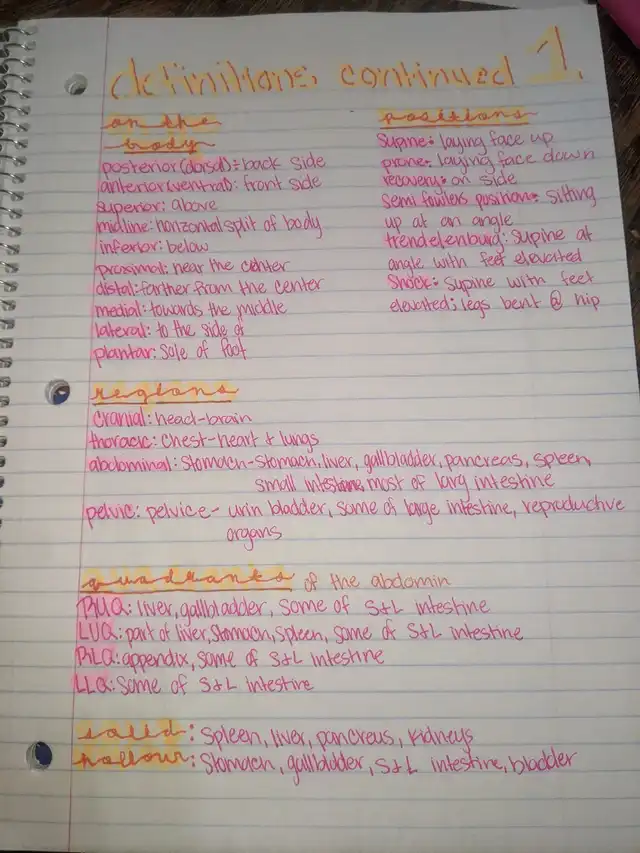 definitions, continued 1.
on the
body
posterior (dorsal): back side
anterior (ventral): front side
superior: above
midline: horizontal split of body
inferior: below
proximal: near the center
distal: farther from the center
medial: towards the middle
lateral: to the side of
plantar: sole of foot
positions
Supine: laying face up
prone: laying face down
recovery: on side
Semi fowlers position: sitting
up at an angle
trendelenburg: supine at
angle with feet elevated
Shock: supine with feet
elevated; legs bent @ hip
regions
cranial: head-brain
thoracic: chest-heart + lungs
abdominal: Stomach-Stomach, liver, gallbladder, pancreas, spleen,
small intestine, most of larg intestine
pelvic: pelvice- urin bladder, some of large intestine, reproductive
organs
quadrants of the abdomin
RUQ: liver, gallbladder, some of S+L intestine
LUQ: part of liver, Stomach, spleen, some of S+L intestine
RLQ: appendix, some of S+L intestine
LLQ: Some of S+L intestine
solid: Spleen, liver, pancreus, kidneys
hollow: Stomach, gallbladder, S+L intestine, bladder